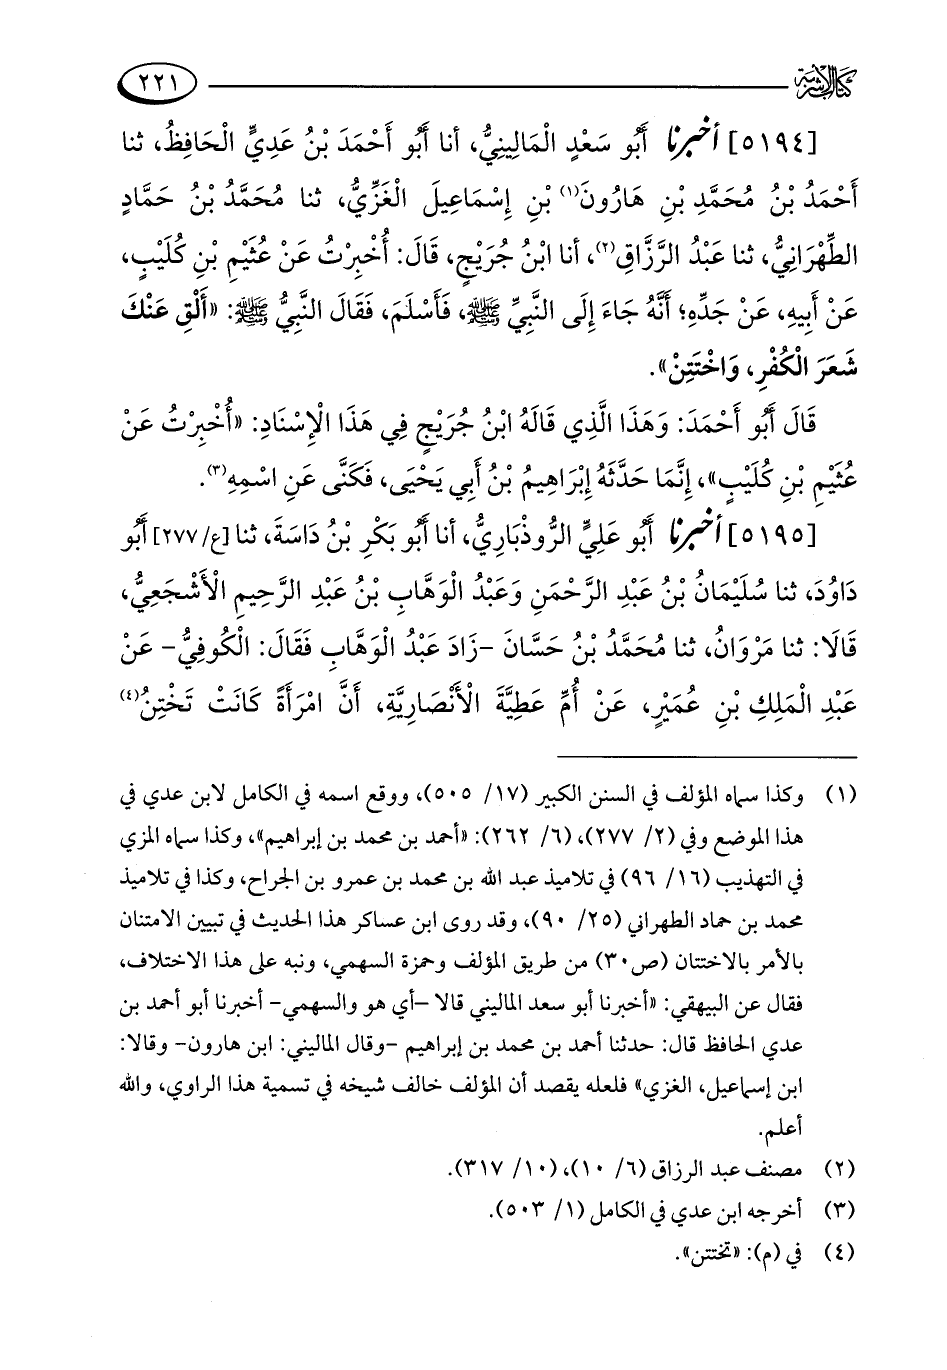 كتاب الأشربة
٢٢١
[٥١٩٤] أخبرنا أَبُو سَعْدٍ الْمَالِينِيُّ، أنا أَبُو أَحْمَدَ بْنُ عَدِيٍّ الْحَافِظُ، ثنا
أَحْمَدُ بْنُ مُحَمَّدِ بْنِ هَارُونَ(١) بْنِ إِسْمَاعِيلَ الْغَزِّيُّ، ثنا مُحَمَّدُ بْنُ حَمَّادٍ
الطِّهْرَانِيُّ، ثنا عَبْدُ الرَّزَّاقِ(٢)، أنا ابْنُ جُرَيْجٍ، قَالَ: أُخْبِرْتُ عَنْ عُثَيْمِ بْنِ كُلَيْبٍ،
عَنْ أَبِيهِ، عَنْ جَدِّهِ؛ أَنَّهُ جَاءَ إِلَى النَّبِيِّ ﷺ، فَأَسْلَمَ، فَقَالَ النَّبِيُّ ﷺ: «أَلْقِ عَنْكَ
شَعَرَ الْكُفْرِ، وَاخْتَتِنْ».
قَالَ أَبُو أَحْمَدَ: وَهَذَا الَّذِي قَالَهُ ابْنُ جُرَيْجٍ فِي هَذَا الْإِسْنَادِ: «أُخْبِرْتُ عَنْ
عُثَيْمِ بْنِ كُلَيْبٍ»، إِنَّمَا حَدَّثَهُ إِبْرَاهِيمُ بْنُ أَبِي يَحْيَى، فَكَنَّى عَنِ اسْمِهِ(٣).
[٥١٩٥] أخبرنا أَبُو عَلِيٍّ الرُّوذْبَارِيُّ، أنا أَبُو بَكْرِ بْنُ دَاسَةَ، ثنا [ع/٢٧٧] أَبُو
دَاوُدَ، ثنا سُلَيْمَانُ بْنُ عَبْدِ الرَّحْمَنِ وَعَبْدُ الْوَهَّابِ بْنُ عَبْدِ الرَّحِيمِ الْأَشْجَعِيُّ،
قَالَا: ثنا مَرْوَانُ، ثنا مُحَمَّدُ بْنُ حَسَّانَ -زَادَ عَبْدُ الْوَهَّابِ فَقَالَ: الْكُوفِيُّ- عَنْ
عَبْدِ الْمَلِكِ بْنِ عُمَيْرٍ، عَنْ أُمِّ عَطِيَّةَ الْأَنْصَارِيَّةِ، أَنَّ امْرَأَةً كَانَتْ تَخْتِنُ(٤)
(١) وكذا سماه المؤلف في السنن الكبير (١٧/ ٥٠٥)، ووقع اسمه في الكامل لابن عدي في
هذا الموضع وفي (٢/ ٢٧٧)، (٦/ ٢٦٢): «أحمد بن محمد بن إبراهيم»، وكذا سماه المزي
في التهذيب (١٦/ ٩٦) في تلاميذ عبد الله بن محمد بن عمرو بن الجراح، وكذا في تلاميذ
محمد بن حماد الطهراني (٢٥/ ٩٠)، وقد روى ابن عساكر هذا الحديث في تبيين الامتنان
بالأمر بالاختتان (ص٣٠) من طريق المؤلف وحمزة السهمي، ونبه على هذا الاختلاف،
فقال عن البيهقي: «أخبرنا أبو سعد الماليني قالا -أي هو والسهمي- أخبرنا أبو أحمد بن
عدي الحافظ قال: حدثنا أحمد بن محمد بن إبراهيم -وقال الماليني: ابن هارون- وقالا:
ابن إسماعيل، الغزي» فلعله يقصد أن المؤلف خالف شيخه في تسمية هذا الراوي، والله
أعلم.
(٢) مصنف عبد الرزاق (٦/ ١٠)، (١٠/ ٣١٧).
(٣) أخرجه ابن عدي في الكامل (١/ ٥٠٣).
(٤) في (م): «تختتن».